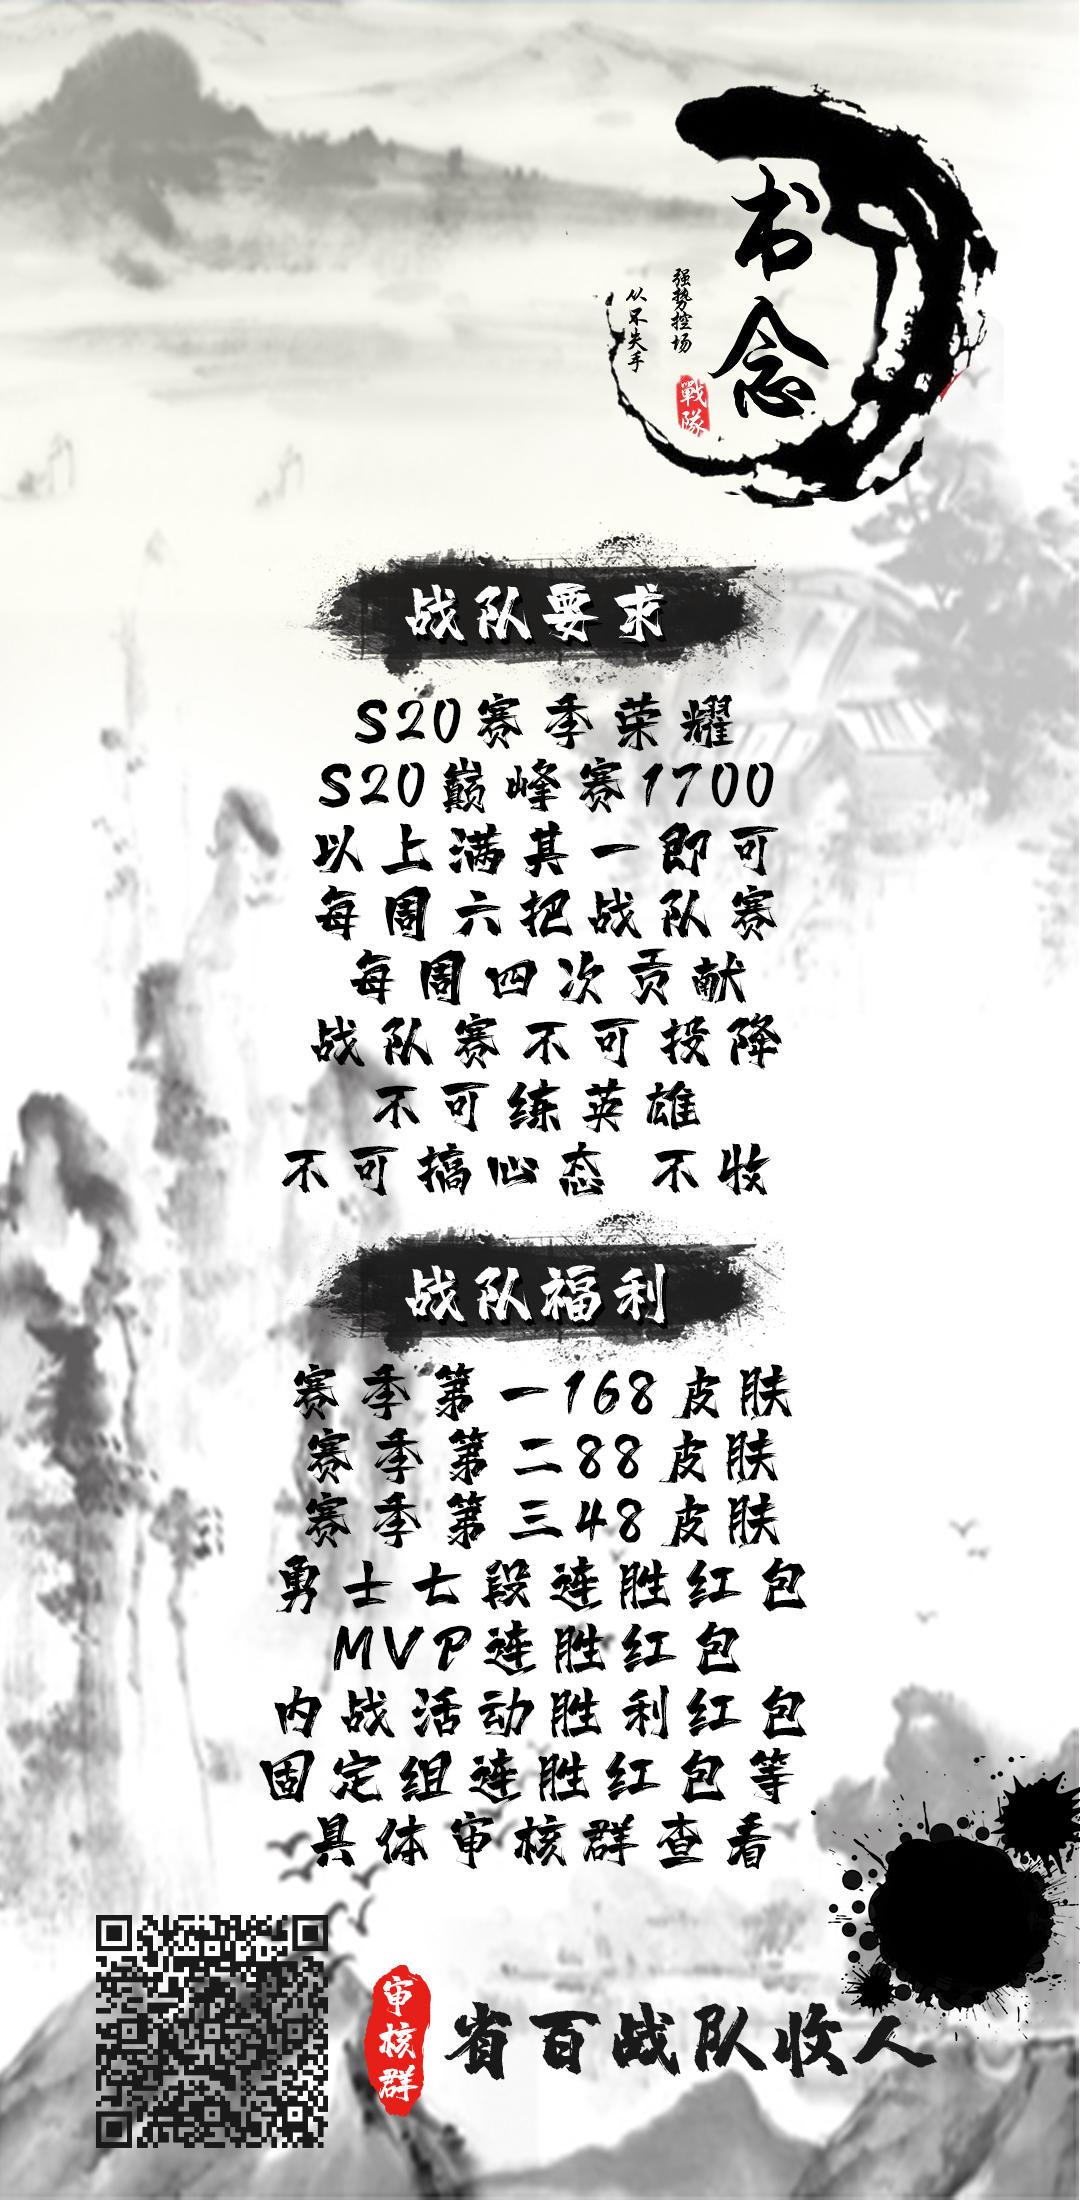 书念
强势控场
从不失手
戰隊
战队要求
S20赛季荣耀
S20巅峰赛1700
以上满其一即可
每周六把战队赛
每周四次贡献
战队赛不可投降
不可练英雄
不可搞心态 不收
战队福利
赛季第一168皮肤
赛季第二88皮肤
赛季第三48皮肤
勇士七段连胜红包
MVP连胜红包
内战活动胜利红包
固定组连胜红包等
具体审核群查看
审核群
省百战队收人